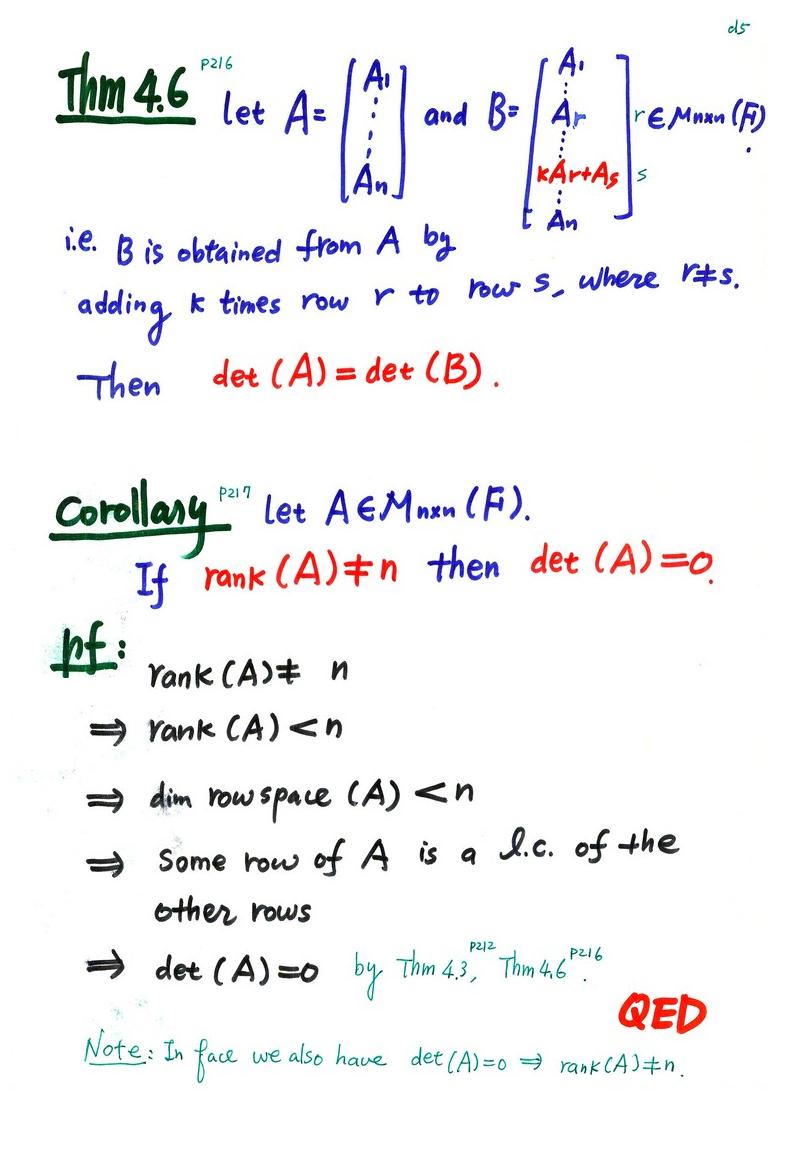 d5
Thm 4.6 P216 let A = [A1 ⋮ An] and B = [A1 ⋮ Ar ⋮ kAr+As ⋮ An] r s ∈ Mnxn (F).
i.e. B is obtained from A by
adding k times row r to row s, where r≠s.
Then det (A) = det (B).
Corollary P217 Let A ∈ Mnxn (F).
If rank (A) ≠ n then det (A) = 0.
pf:
rank (A) ≠ n
⇒ rank (A) < n
⇒ dim rowspace (A) < n
⇒ Some row of A is a l.c. of the
other rows
⇒ det (A) = 0 by Thm 4.3, P212 Thm 4.6 P216.
QED
Note: In face we also have det (A) = 0 ⇒ rank (A) ≠ n.